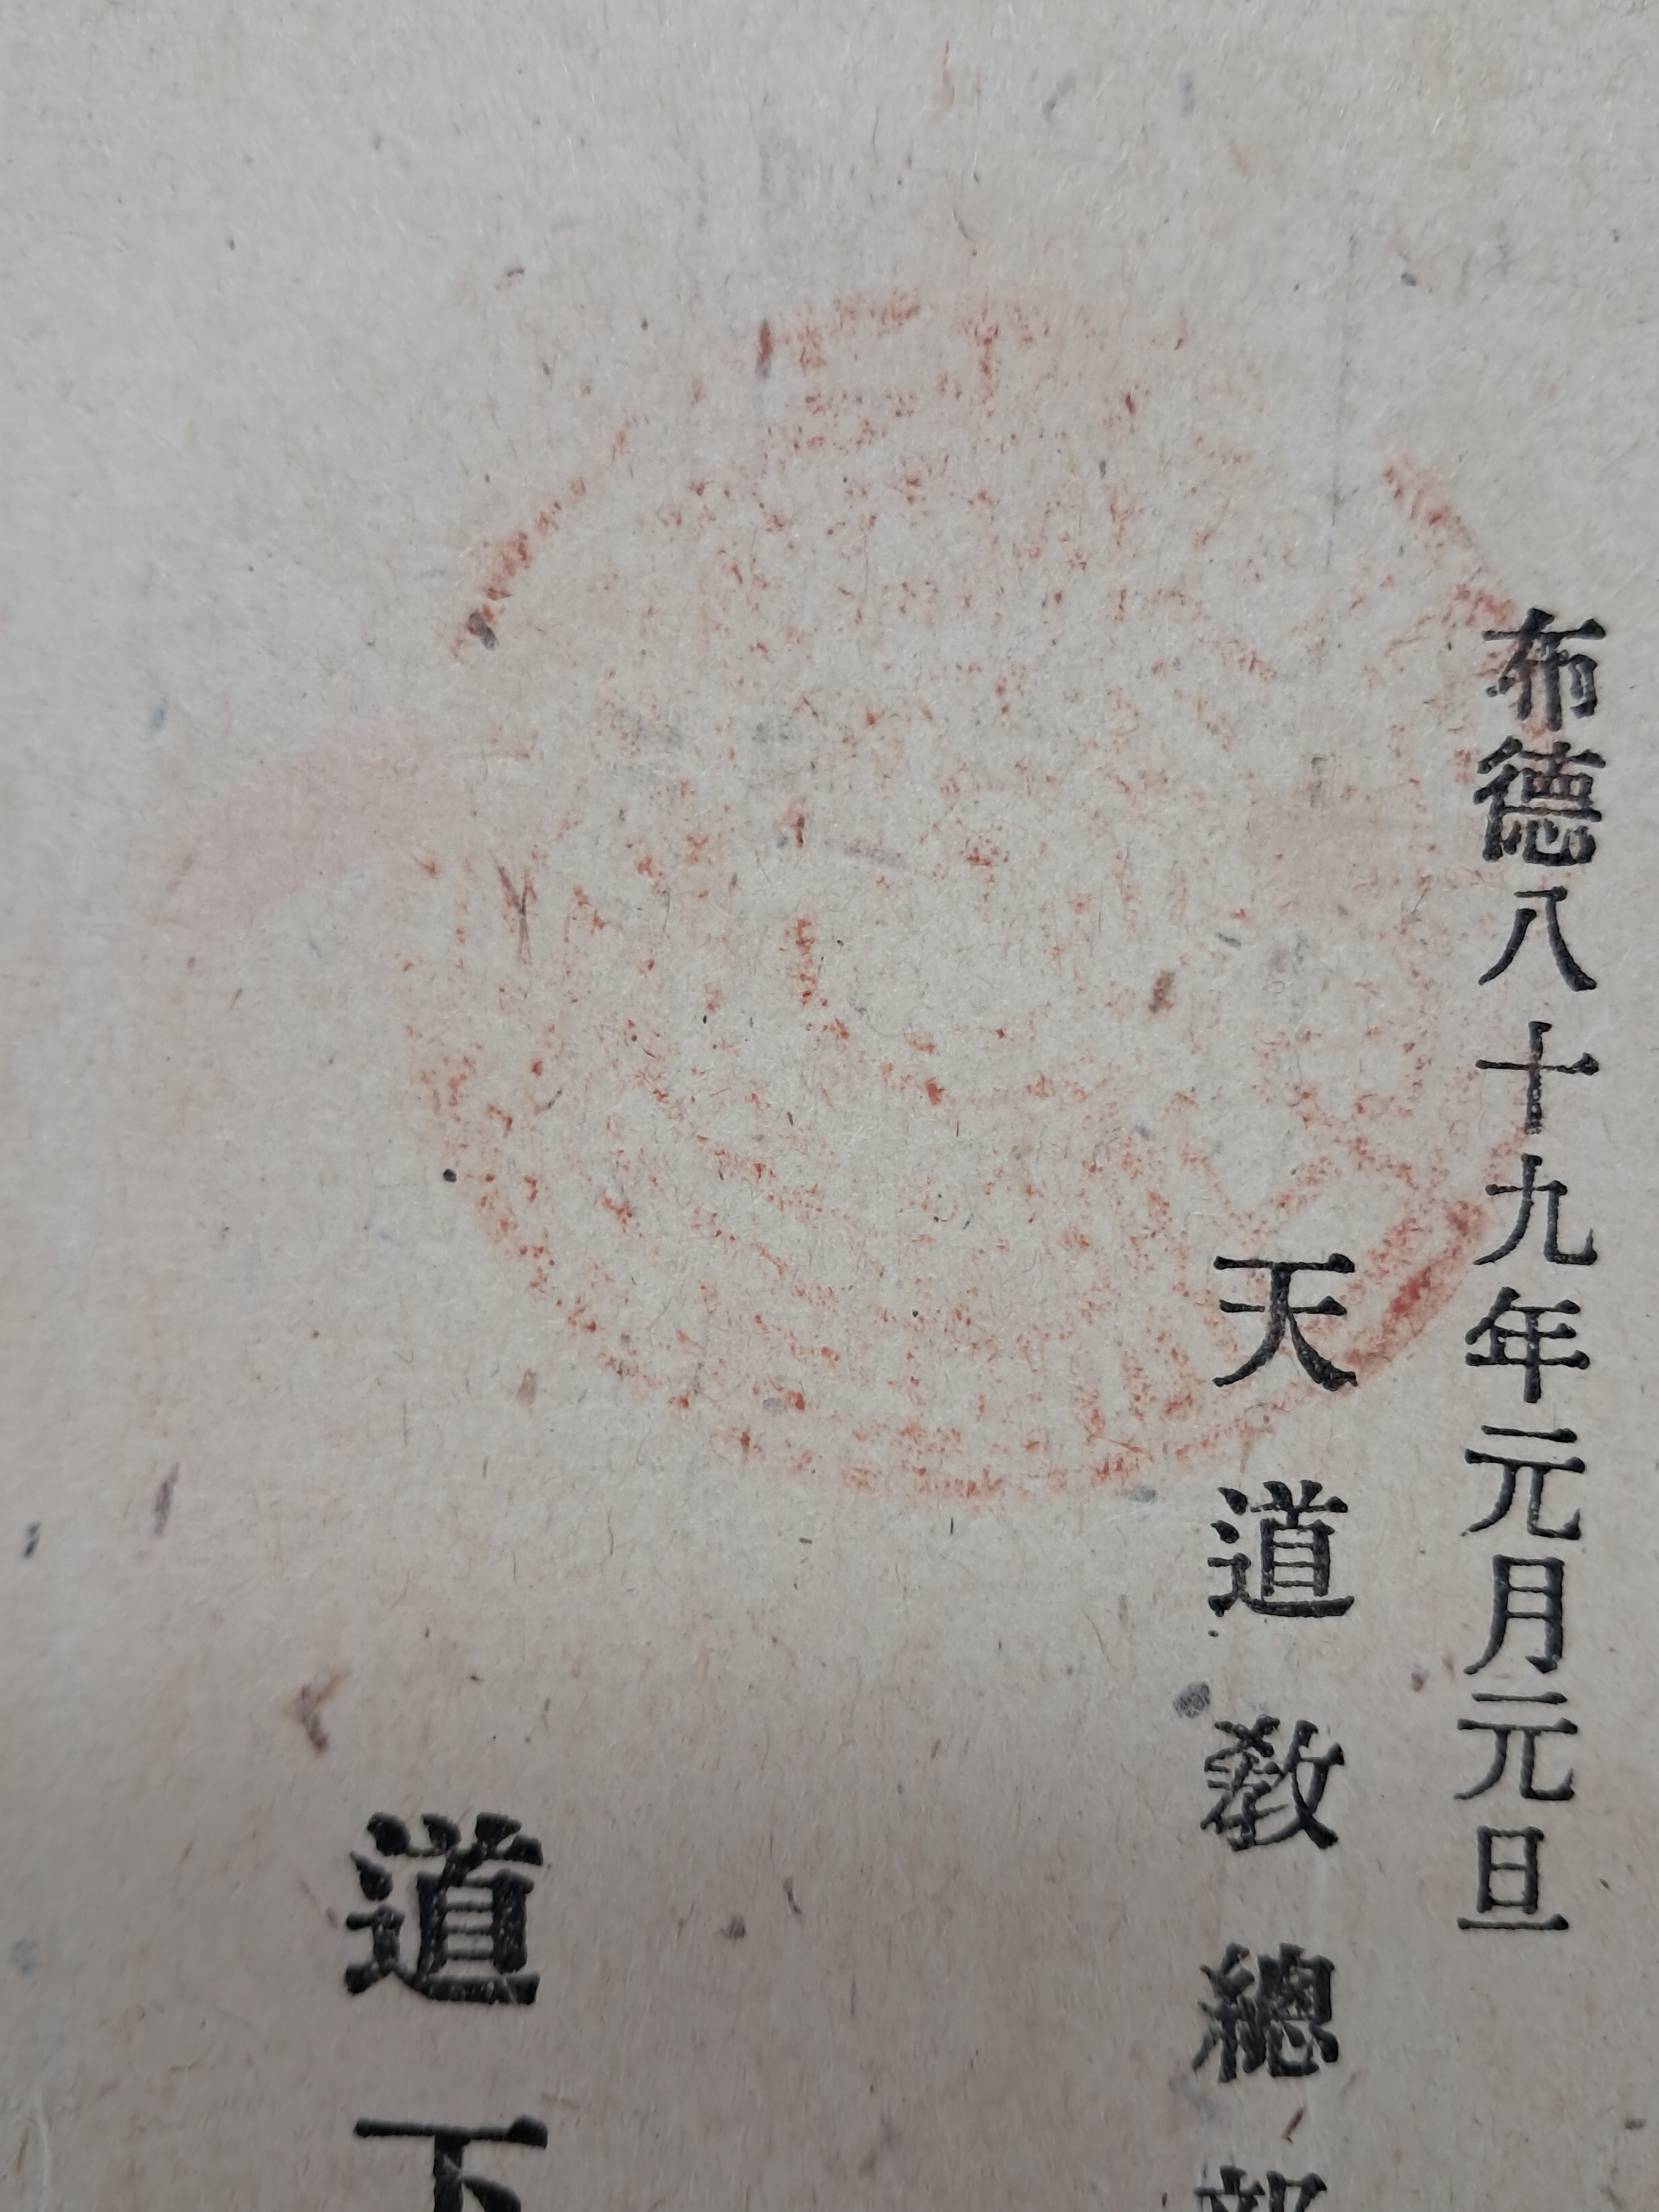 布德八十九年元月元旦
天道敎總部
道下